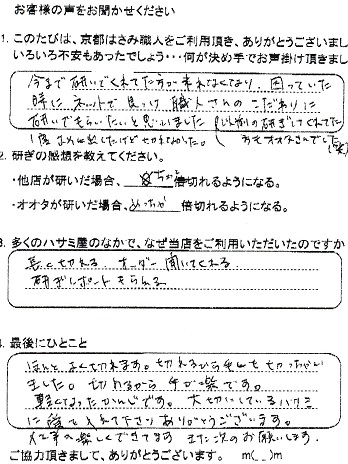 お客様の声をお聞かせください
1. このたびは、京都はさみ職人をご利用頂き、ありがとうございまし
いろいろ不安もあったでしょう・・・何が決め手でお声掛け頂きまし
今まで研いでくれてた方が来れなくなり、困っていた
時に ネットで見つけ 職人さんのこだわりに
研いでもらいたいと思いました
以前の研ぎしてくれてた
2. 研ぎの感想を教えてください。
・他店が研いだ場合、 倍切れるようになる。
・オオタが研いだ場合、めっちゃ 倍切れるようになる。
3. 多くのハサミ屋のなかで、なぜ当店をご利用いただいたのですか
長く切れる オーダー聞いてくれる
研ぎレポートもらえる
4. 最後にひとこと
ほんと よく切れます。切れるから
ました。切れるから 手が楽です。
軽くなったかんじです。大切にしているハサミ
ありがとうございます。
仕事が楽しくできてます また次のお願いします。
ご協力頂きまして、ありがとうございます。 m(__)m